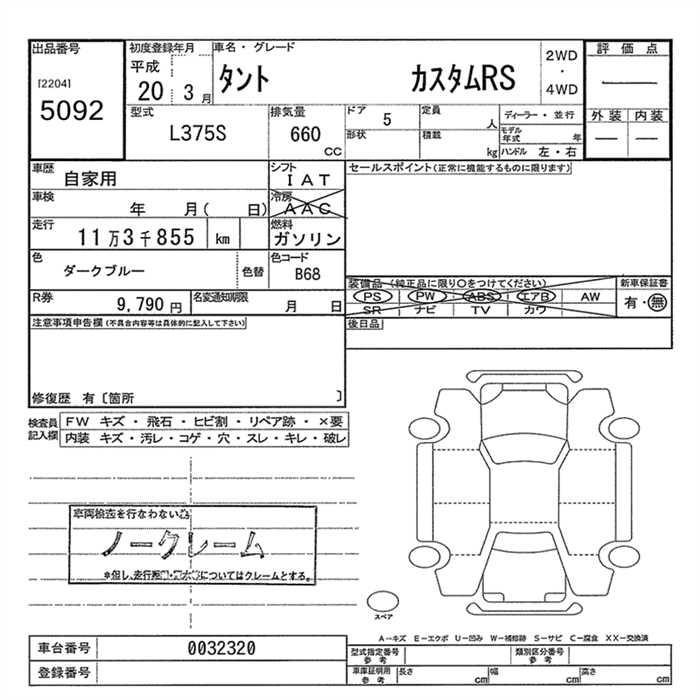 出品番号
[2204]
5092
初度登録年月
平成
20 3月
車名・グレード
タント カスタムRS
2WD
・
4WD
評価点
―
外装 内装
― ―
型式
L375S
排気量
660
CC
ドア 5
形状
定員 人
積載 kg
ディーラー・並行
モデル年式 年
ハンドル 左・右
車歴
自家用
シフト
IAT
車検
年 月( 日)
冷房
AAC
走行
11万3千855 km
燃料
ガソリン
色
ダークブルー
色替
色コード
B68
R券
9,790円
名変通知期限
月 日
セールスポイント(正常に機能するものに限ります)
装備品(純正品に限り〇をつけてください)
PS PW ABS エアB AW
SR ナビ TV カワ
新車保証書
有・無
後日品
注意事項申告欄(不具合内容等は具体的に記入して下さい)
修復歴 有〔箇所 〕
検査員記入欄
FW キズ・飛石・ヒビ割・リペア跡・×要
内装 キズ・汚レ・コゲ・穴・スレ・キレ・破レ
車両検査を行なわない為
ノークレーム
スペア
A―キズ E―エクボ U―凹み W―補修跡 S―サビ C―腐食 XX―交換済
車台番号 0032320
登録番号
型式指定番号
参考
類別区分番号
参考
車庫証明用
参考
長さ cm
幅 cm
高さ cm